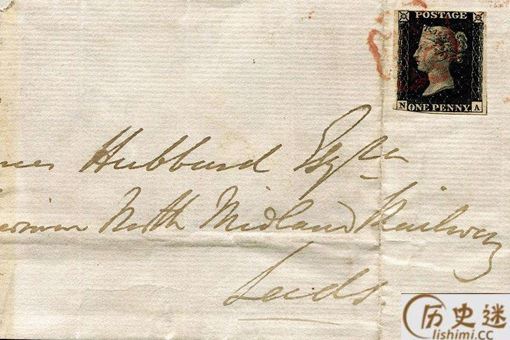 POSTAGE
N ONE PENNY A
Hubbard Esqre
North Midland Railway
Leeds
历史迷
lishimi.cc